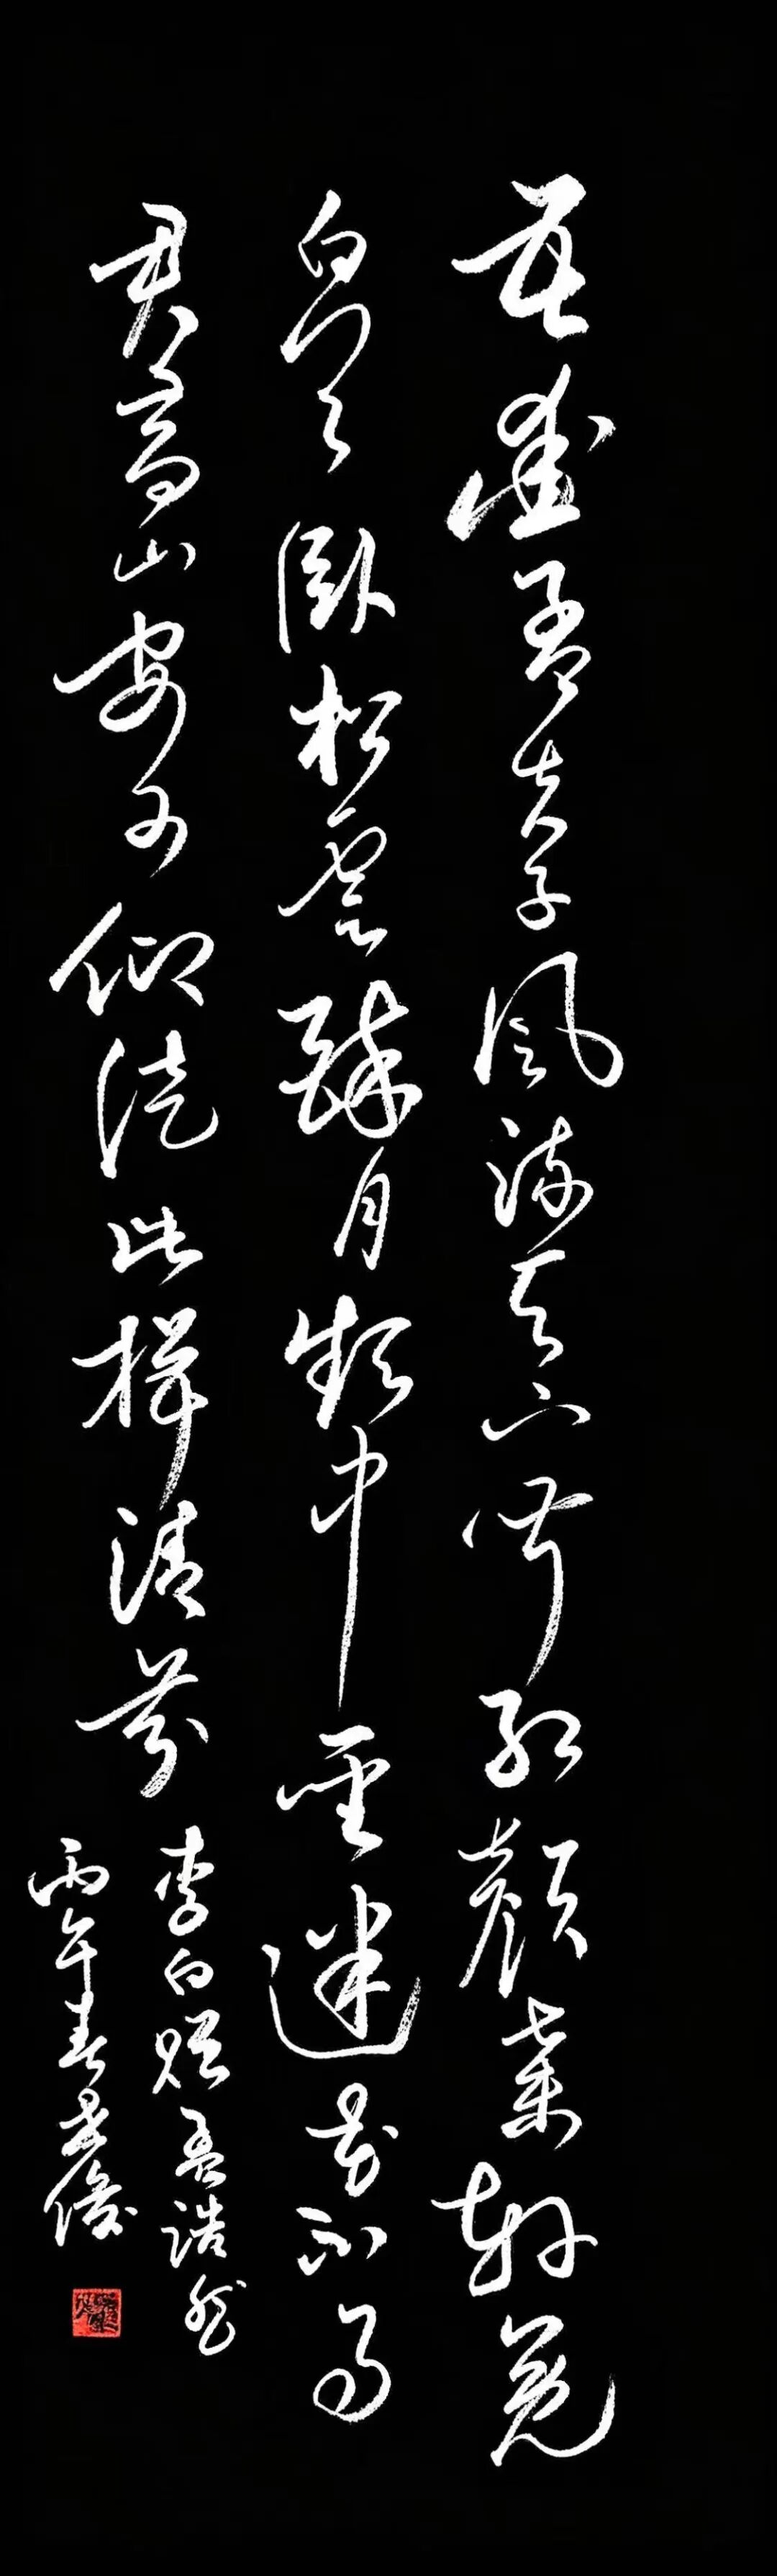 吾爱孟夫子风流天下闻红颜弃轩冕
白首卧松云醉月频中圣迷花不事
君高山安可仰徒此揖清芬
李白赠孟浩然
丙午春